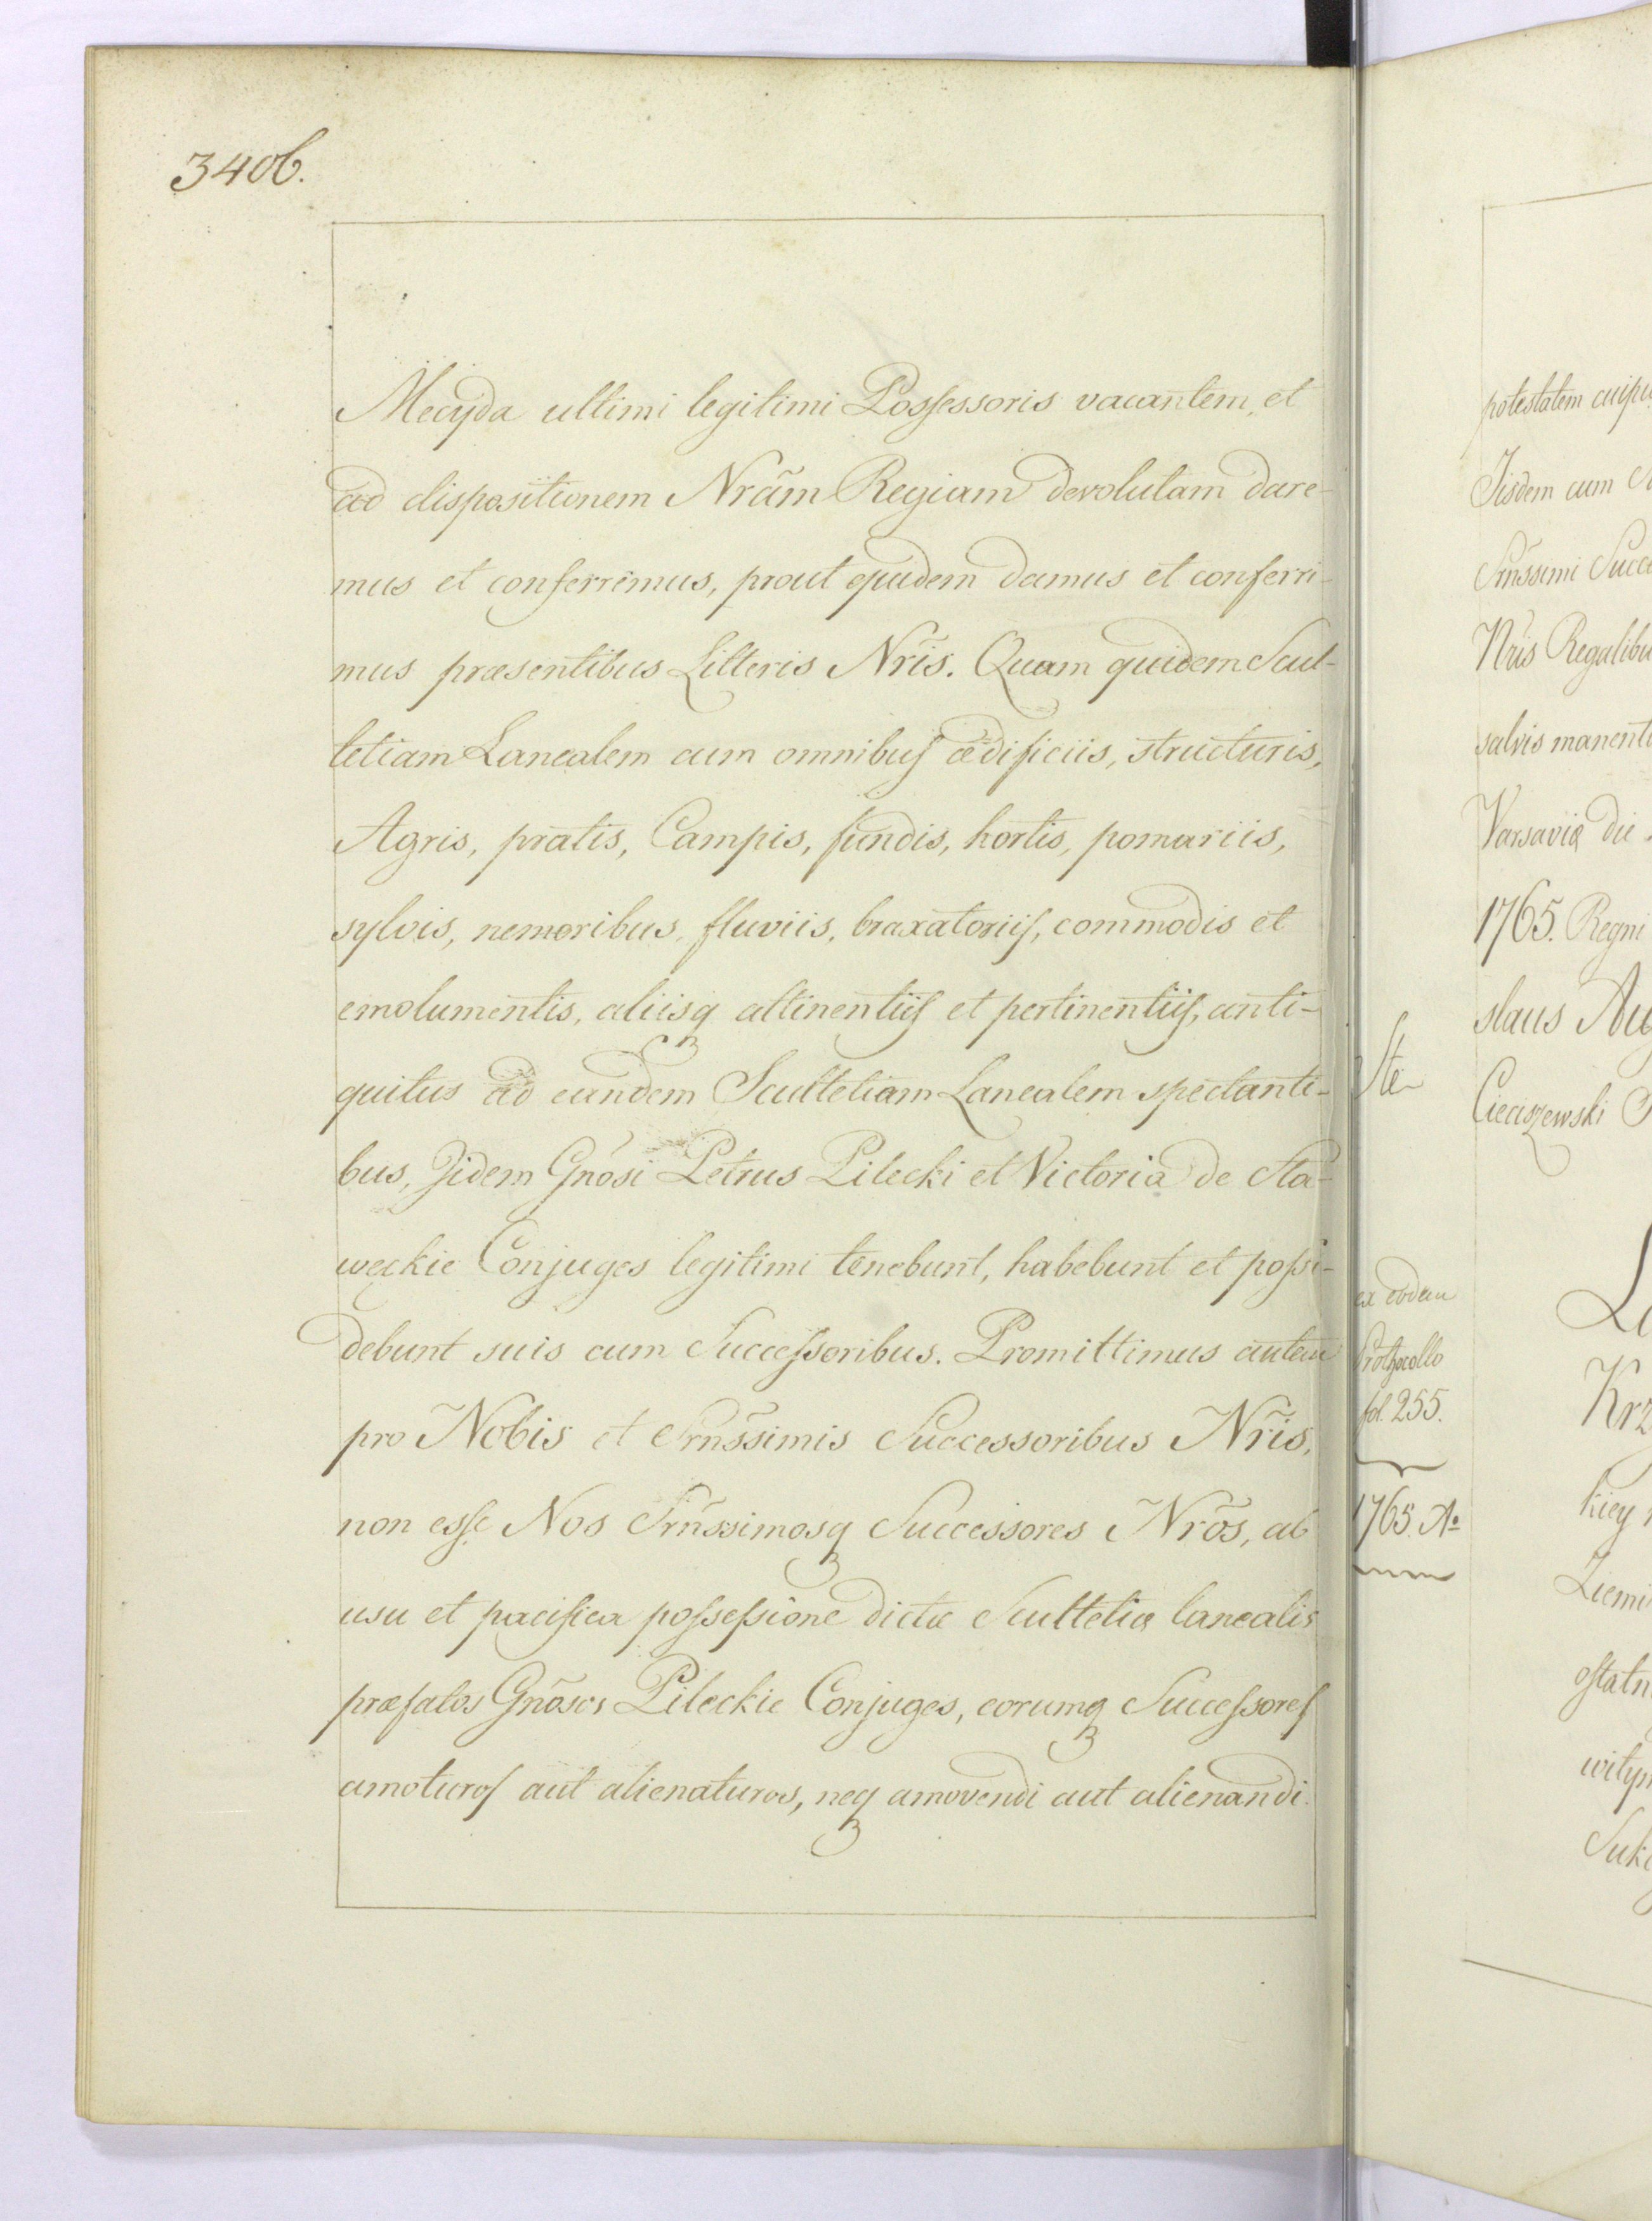 3406.
Mecyda ultimi legitimi Possessoris vacantem, et
ad dispositionem Nrãm Regiam devolutam dare-
mus et conferremus, prout quidem damus et conferri-
mus præsentibus Litteris Nrĩs. Quam quidem Scul-
tetiam Lanealem cum omnibus ædificiis, structuris,
Agris, pratis, Campis, fundis, hortis, pomariis,
sylvis, nemoribus, fluviis, braxatoriis, commodis et
emolumentis, aliisq attinentiis et pertinentiis, anti-
quitus ad eandem Scultetiam Lanealem spectanti-
bus, Jidem Gnõsi Petrus Pilecki et Victoria de Sta-
weckie Conjuges legitimi tenebunt, habebunt et possi-
debunt suis cum Successoribus. Promittimus autem
pro Nobis et Srñssimis Successoribus Nrĩs,
non esse Nos Srñssimosq Successores Nrõs, ab
usu et pacifica possessione dictæ Scultetiæ lanealis
præfatos Gnõsos Pileckie Conjuges, eorumq Successores
amoturos aut alienaturos, neq amovendi aut alienandi.
potestatem
Jisdem cum
Srñssimi
Nrĩs
salvis
Varsaviæ die
1765. Regni
slaus
Cieciszewski
ex eodem
Prothocollo
fol. 255.
1765. Aº